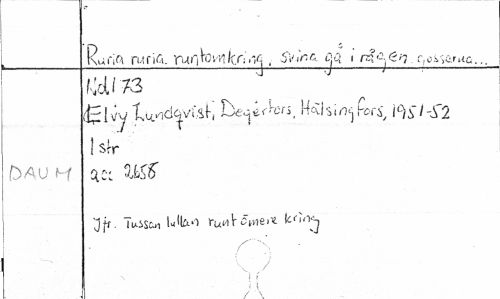 Ruria ruria runtomkring, svina gå i rågen gosserna...
Nd 173
Elvy Lundqvist, Degerfors, Hälsingfors, 1951-52
1 str
DAUM acc 2658
Jfr. Tussan lullan runt omere kring